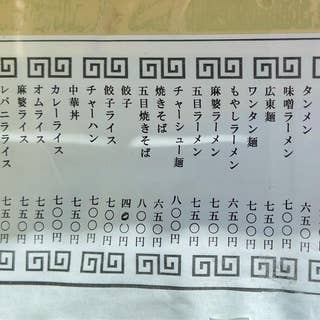 タンメン
味噌ラーメン 六五〇円
広東麺 七五〇円
ワンタン麺
もやしラーメン 六五〇円
麻婆ラーメン 七五〇円
五目ラーメン 七五〇円
チャーシュー麺 八〇〇円
焼きそば 六五〇円
五目焼きそば 八〇〇円
餃子 四〇〇円
餃子ライス 七〇〇円
チャーハン 七〇〇円
中華丼 七〇〇円
カレーライス 七〇〇円
オムライス 七五〇円
麻婆ライス 七五〇円
レバニラライス 七五〇円